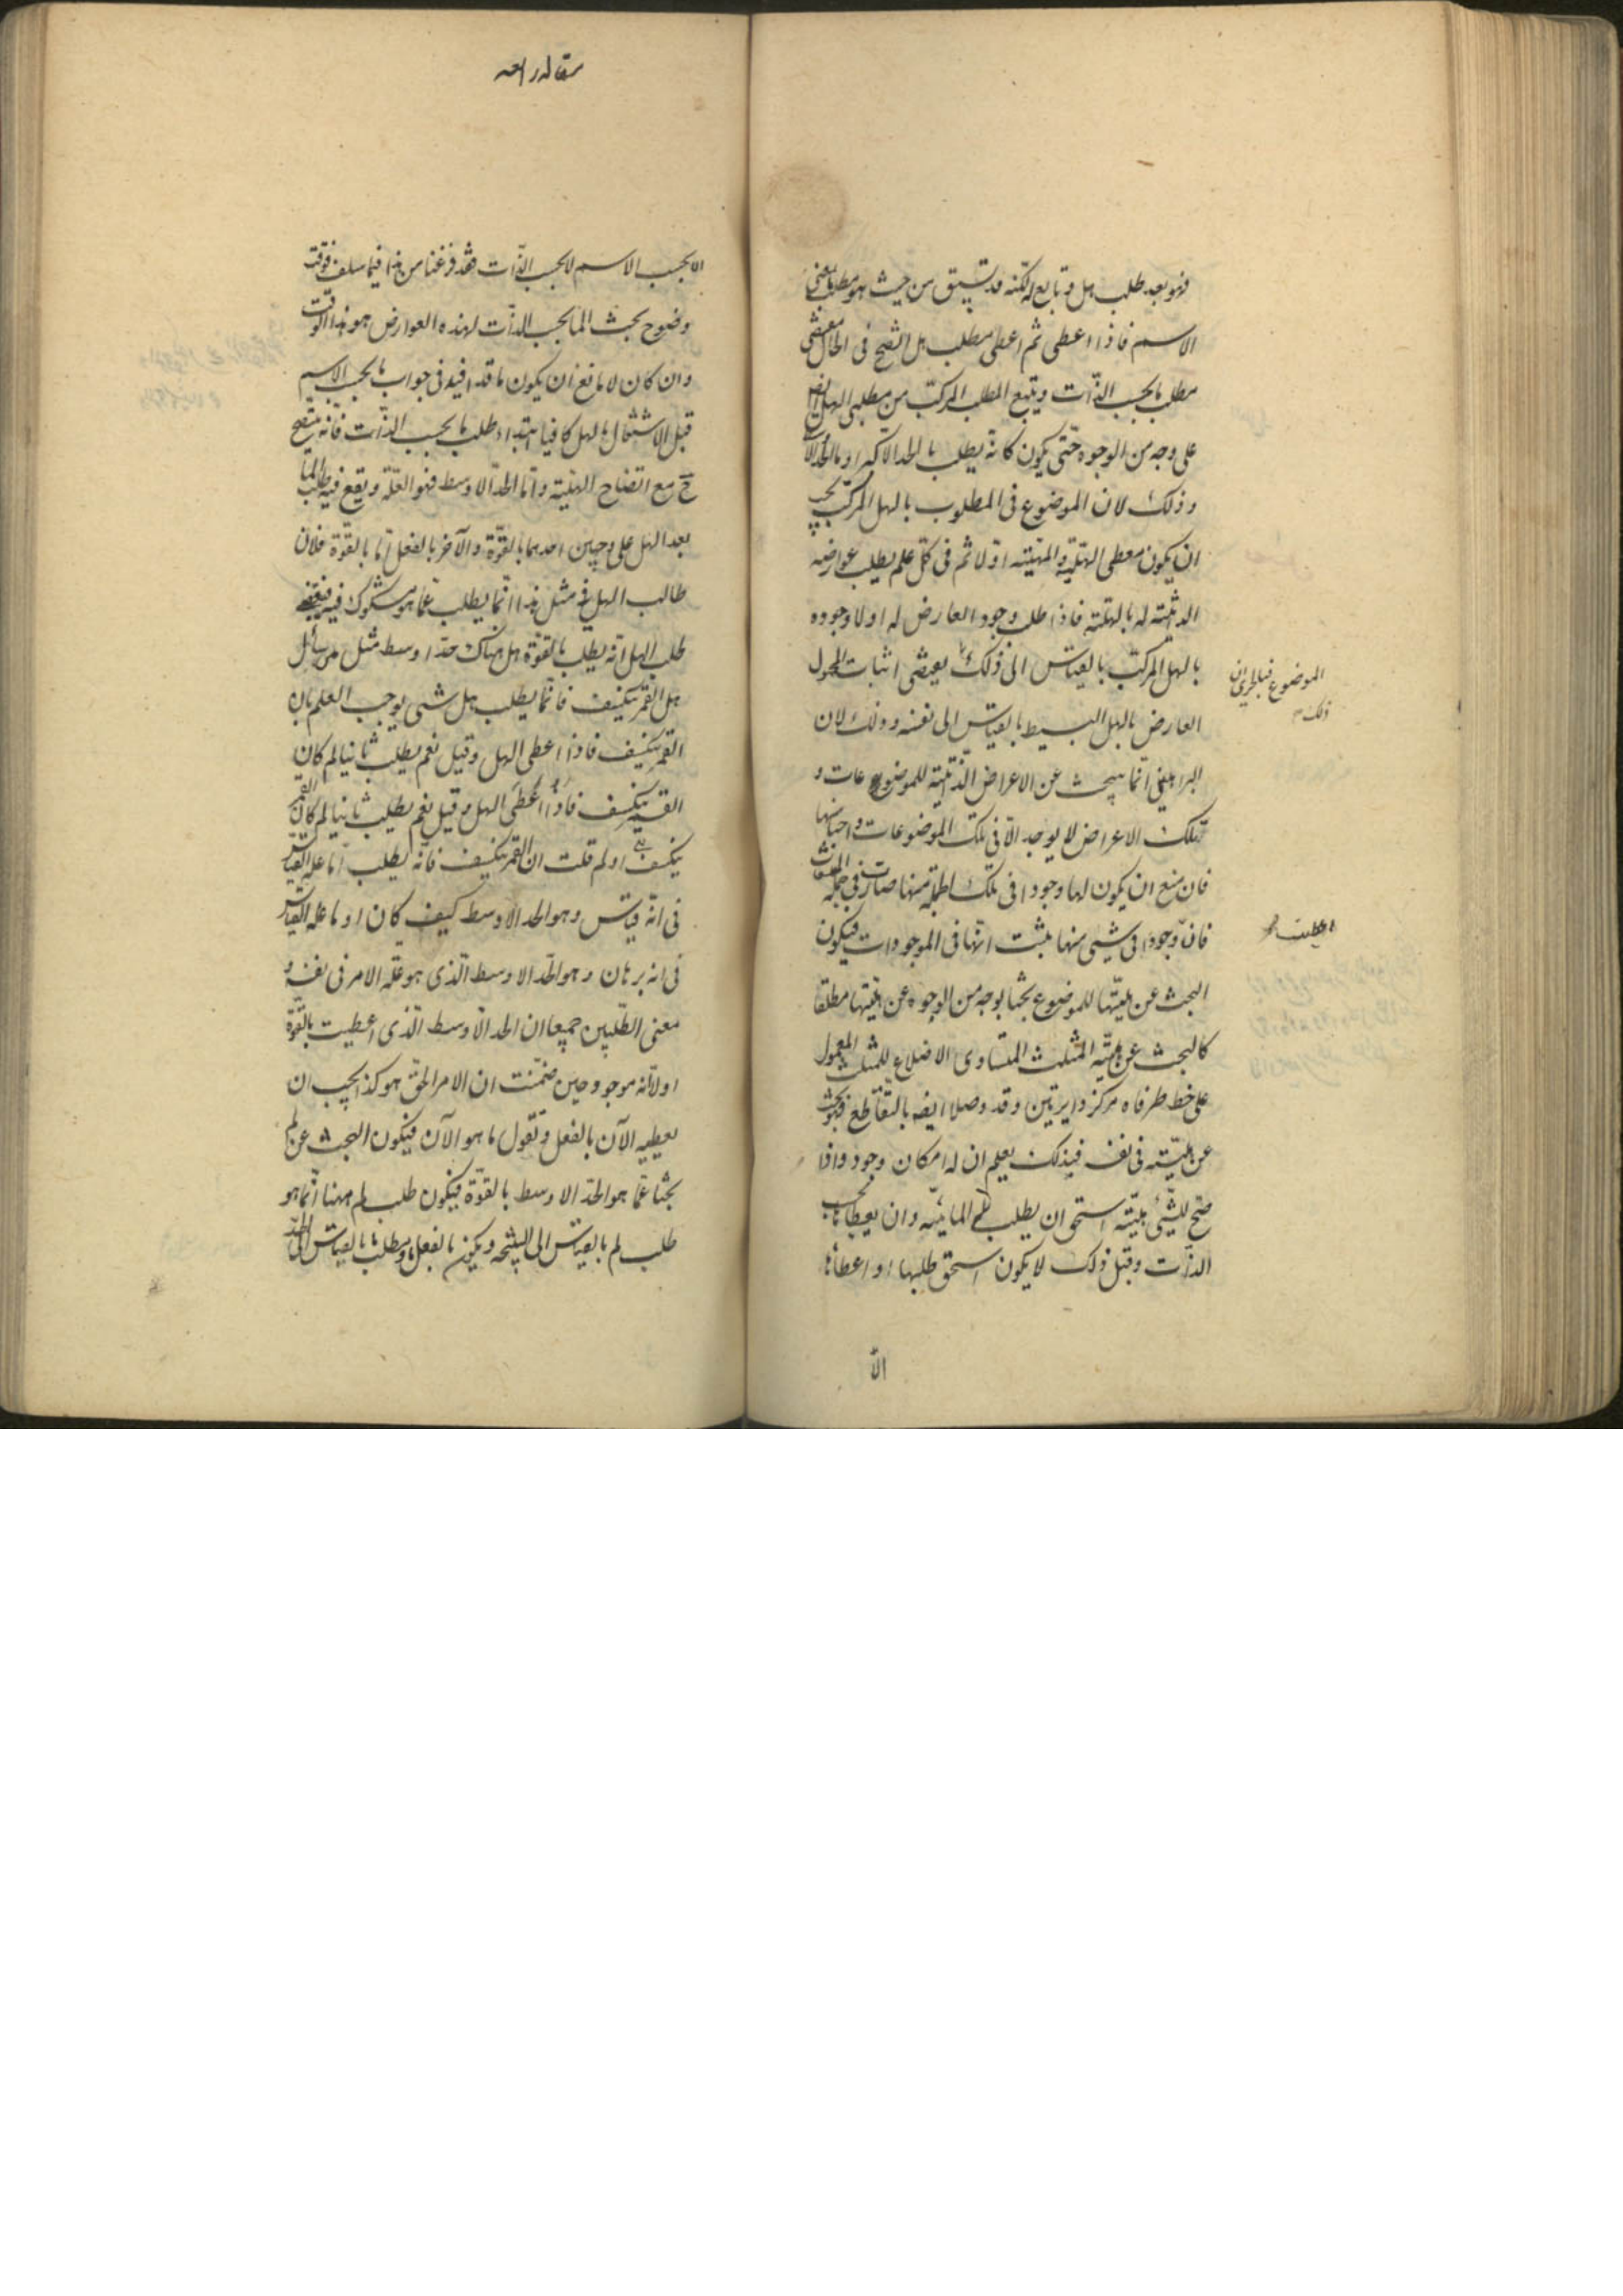 فهو بعد طلب هل وتابع له لكنه قد يسبق من حيث هو مطلب معنى
الاسم فاذا اعطى ثم اعطى مطلب هل اتضح فى الحال معنى
مطلب ما بحسب الذات ويتبع المطلب المركب من مطلبى الهل ايضا
على وجه من الوجوه حتى يكون كانه يطلب بالحد الاكبر او بالحد الا
وذلك لان الموضوع فى المطلوب بالهل المركب يجب
ان يكون معطى الهلية والمائية اولا ثم فى كل علم يطلب عوارضه
الذاتية له بالهلية فاذا طلب وجود العارض له اولا وجوده
بالهل المركب بالقياس الى ذلك يقتضى اثبات المحمول
العارض بالهل البسيط بالقياس الى نفسه وذلك لان
البراهين انما يبحث عن الاعراض الذاتية للموضوعات و
تلك الاعراض لا يوجد الا فى تلك الموضوعات واجناسها
فان منع ان يكون لها وجود فى تلك الجملة منها صارت فى جملة
فان وجود فى شىء منها يثبت انها فى الموجودات فيكون
البحث عن هليتها للموضوع بحثا بوجه من الوجوه عن هليتها مطلقا
كالبحث عن هلية المثلث المتساوى الاضلاع للمثلث المعمول
على خط طرفاه مركز دايرتين وقد وصلا ايضا بالتقاطع فهو بحث
عن هليته فى نفسه فبذلك يعلم ان له امكان وجود واذا
صح للشىء هليته استحق ان يطلب له المائية وان يعطاها بحسب
الذات وقبل ذلك لا يكون استحق طلبها او اعطاؤها
الا
الموضوع
ذلك
اعطيت
مقاله رابعه
الا بحسب الاسم لا بحسب الذات فقد فرغنا من هذا فيما سلف فوقت
وضوح بحث الما بحسب الذات لهذه العوارض هو هذا الوقت
وان كان لا مانع ان يكون ما قد افيد فى جواب ما بحسب الاسم
قبل الاشتغال بالهل كافيا ابتداء طلب ما بحسب الذات فانه يتضح
ح مع اتضاح الهلية واما الحد الاوسط فهو العلة ويقع فيه طلب الما
بعد الهل على وجهين احدهما بالقوة والآخر بالفعل اما بالقوة فلان
طالب الهل فى مثل هذا انما يطلب عما هو مشكوك فيه
طلب الهل انه يطلب بالقوة هل هناك حد اوسط مثل من سأل
هل القمر ينكسف فانما يطلب هل شىء يوجب العلم بان
القمر ينكسف فاذا اعطى الهل وقيل نعم يطلب ثانيا لم كان
القمر ينكسف فاذا اعطى الهل وقيل نعم يطلب ثانيا لم كان القمر
ينكسف او لم قلت ان القمر ينكسف فانه يطلب اما علة القياس
فى انه قياس وهو الحد الاوسط كيف كان او ما علة القياس
فى انه برهان وهو الحد الاوسط الذى هو علة الامر فى نفسه و
معنى الطلبين جميعا ان الحد الاوسط الذى اعطيت بالقوة
اولا انه موجود حين ضمنت ان الامر الحق هو كذا يجب ان
يعطيه الآن بالفعل وتقول ما هو الآن فيكون البحث عن لم
بحثا عما هو الحد الاوسط بالقوة فيكون طلب لم ههنا انما هو
طلب لم بالقياس الى النتيجة ويكون بالفعل مطلب ما بالقياس الى الحد